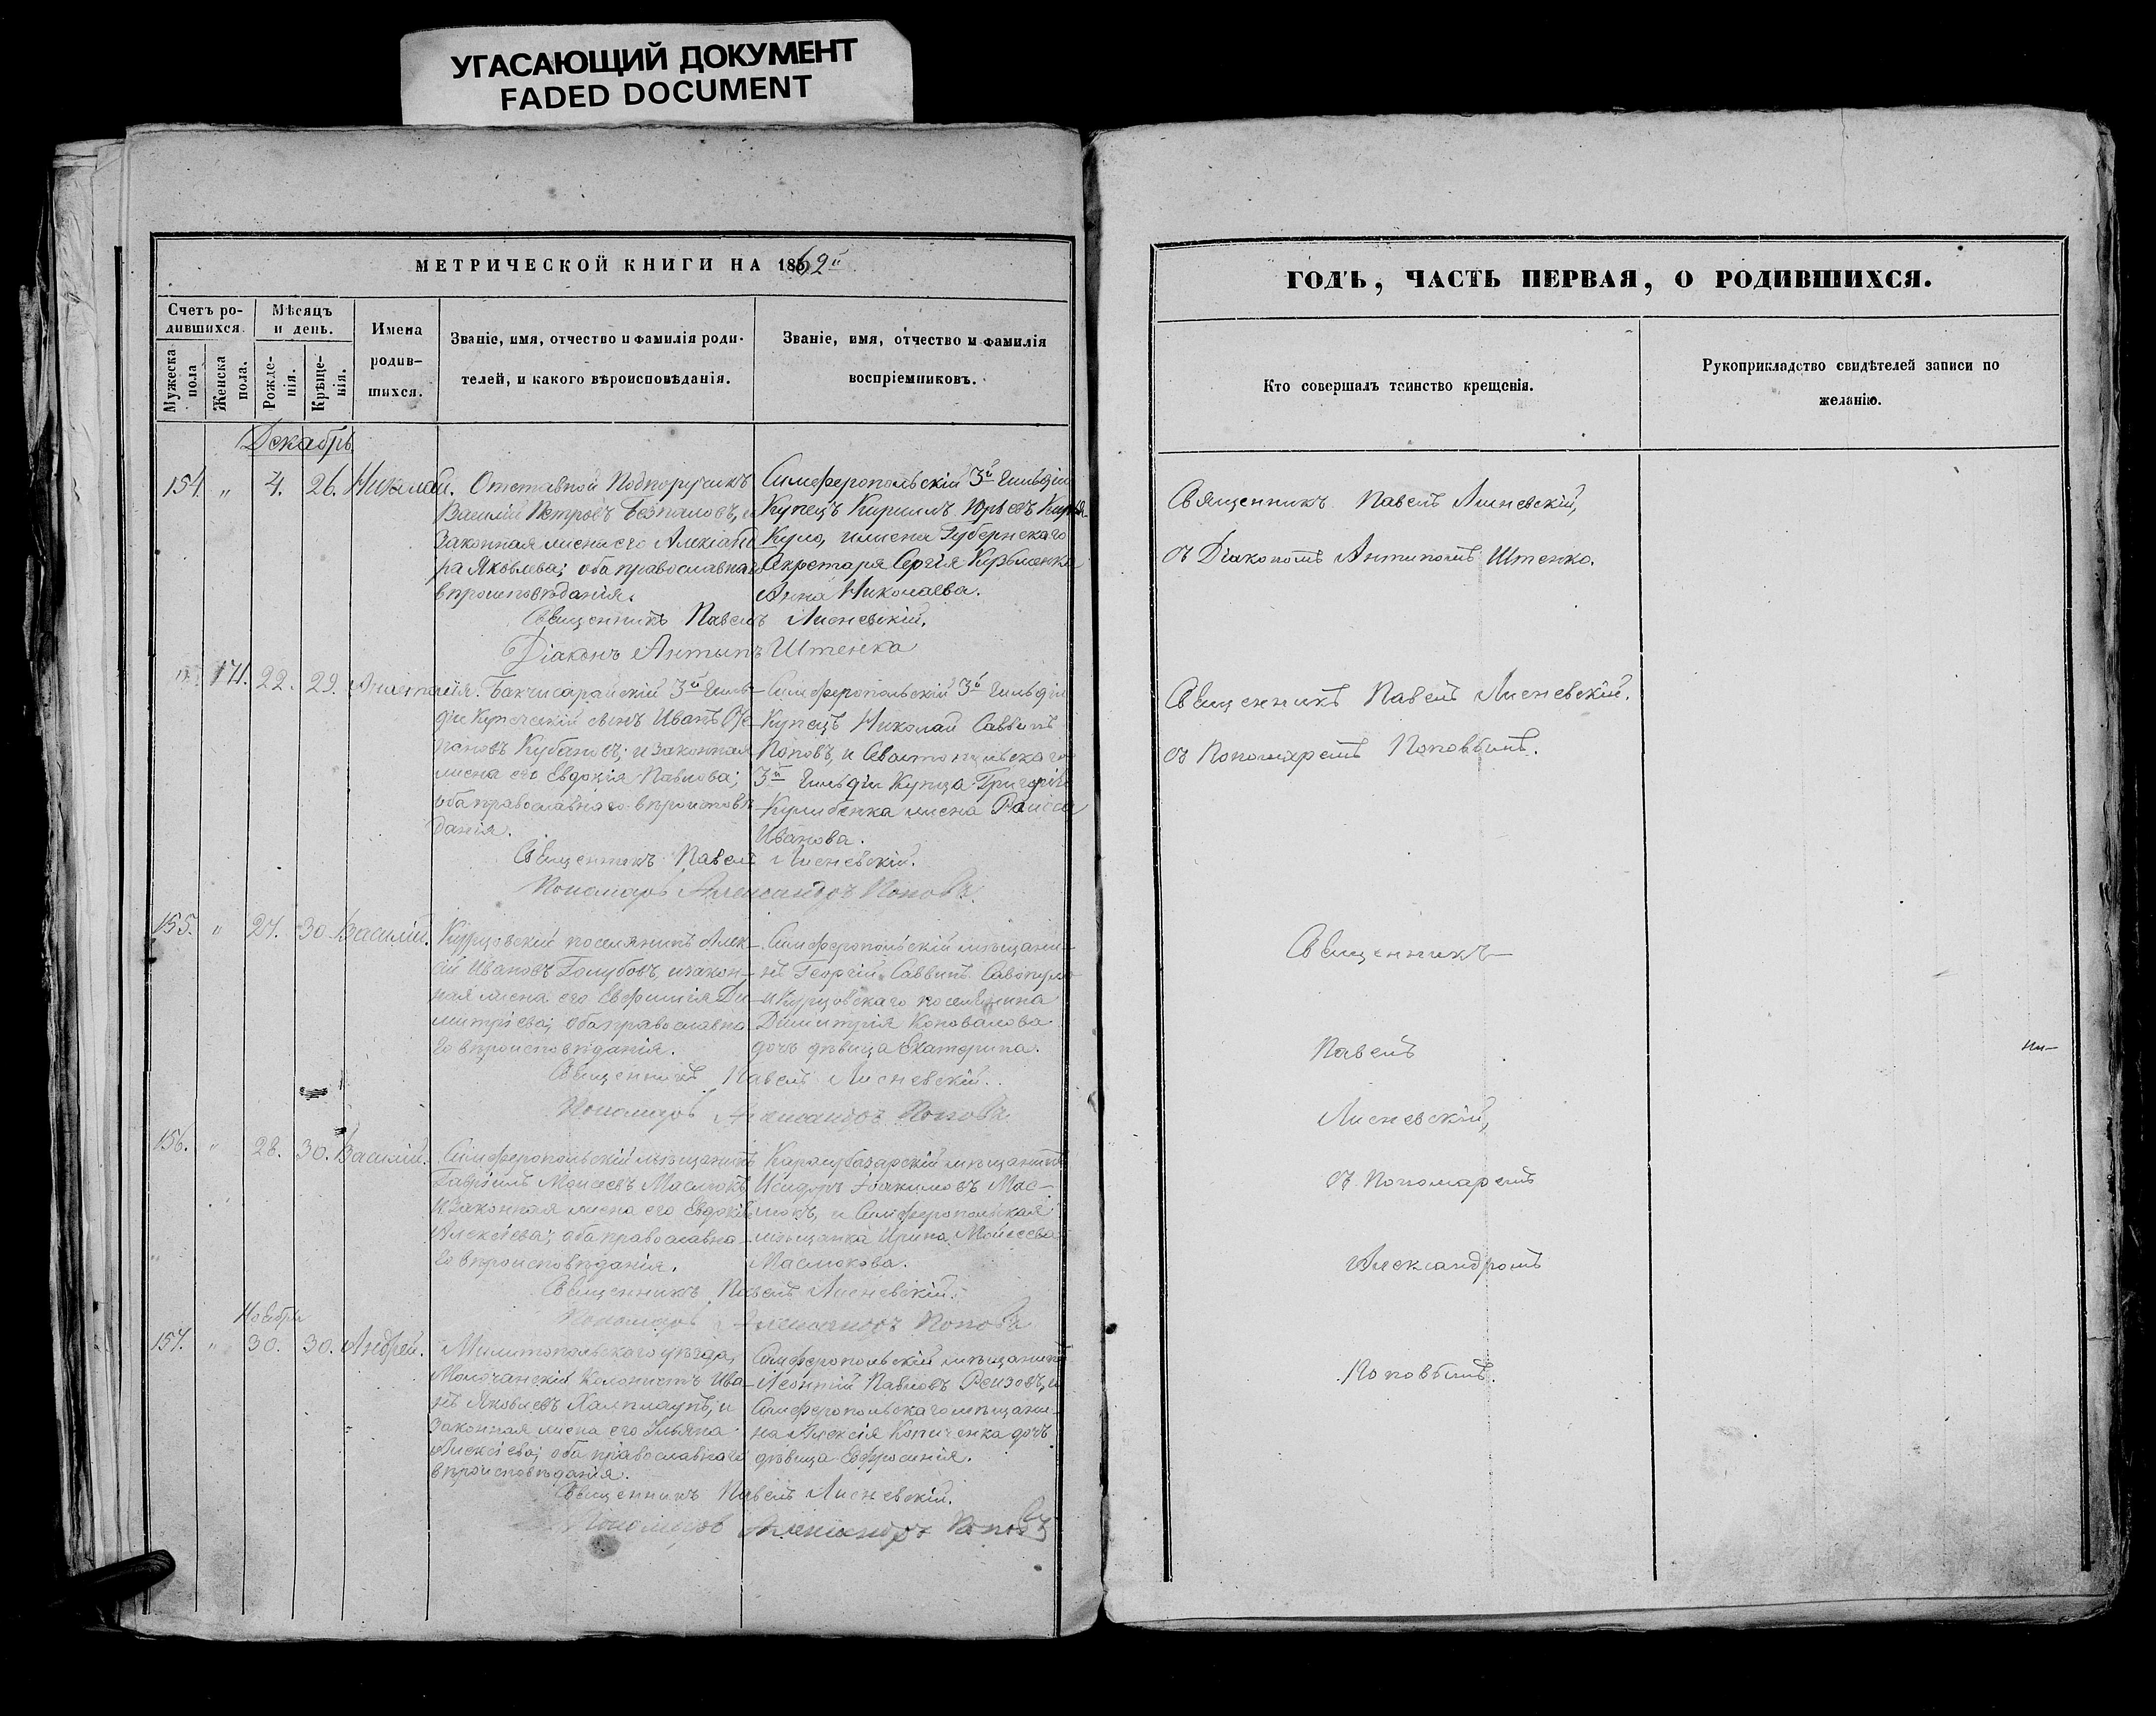 УГАСАЮЩИЙ ДОКУМЕНТ
FADED DOCUMENT
МЕТРИЧЕСКОЙ КНИГИ НА 1862й
Счетъ ро-
дившихся.
Мѣсяцъ
и день.
Мужеска
пола
Женска
пола.
Рожде-
нія.
Крѣще-
нія.
Имена
родив-
шихся.
Званіе, имя, отчество и фамилія роди-
телей, и какого вѣроисповѣданія.
Званіе, имя, отчество и фамилія
воспріемниковъ.
Декабрь
154. „ 4. 26. Николай.
Отставной Подпоручикъ
Василій Петровъ Безпаловъ, и
Законная жена его Александ
ра Яковлева; оба православнаго
вѣроисповѣданія.
Симферопольскій 3й Гильдіи
Купецъ Кириллъ Юрьевъ
и жена Губернскаго
Секретаря Сергія
Анна Николаева.
Священникъ Павелъ Лисневскій.
Діаконъ Антипъ Штенка
171. 22. 29. Анастасія.
Бахчисарайскій 3й Гиль-
діи Купеческій сынъ Иванъ Сте
пановъ Кубановъ; и законная
жена его Евдокія Павлова;
оба православнаго вѣроисповѣ
данія.
Симферопольскій 3й Гильдіи
Купецъ Николай Саввинъ
Поповъ, и Севастопольскаго
3й Гильдіи Купца Григорія
жена Раиса
Иванова.
Священникъ Павелъ Лисневскій.
Пономарь Александръ Поповъ.
155. „ 27. 30. Василій.
Курцовскій поселянинъ Алек-
сій Ивановъ Голубовъ, и закон-
ная жена его Евфимія Ди-
митріева; оба православна
го вѣроисповѣданія.
Симферопольскій мѣщани-
нъ Георгій Саввинъ
и Курцовскаго поселянина
Димитрія Коновалова
дочь дѣвица Екатерина.
Священникъ Павелъ Лисневскій.
Пономарь Александръ Поповъ.
156. „ 28. 30. Василій.
Симферопольскій мѣщанинъ
Гавріилъ Моисеевъ Маслюкъ
и Законная жена его Евдокія
Алексіева; оба православна
го вѣроисповѣданія.
Карасубазарскій мѣщанинъ
Исидоръ Іоакимовъ Мас-
люкъ, и Симферопольская
мѣщанка Ирина Моисеева
Маслюкова.
Священникъ Павелъ Лисневскій.
Пономарь Александръ Поповъ
Ноября
157. „ 30. 30. Андрей.
Милитопольскаго уѣзда,
Молочанскій Колонистъ Ива-
нъ Яковлевъ, и
Законная жена его Ульяна
Алексіева; оба православнаго
вѣроисповѣданія.
Симферопольскій мѣщанинъ
Леонтій Павловъ Резовъ, и
Симферопольскаго мѣщани-
на Алексія Копиченка дочь
дѣвица Ефросинія.
Священникъ Павелъ Лисневскій.
Пономарь Александръ Поповъ
ГОДЪ, ЧАСТЬ ПЕРВАЯ, О РОДИВШИХСЯ.
Кто совершалъ таинство крещенія.
Рукоприкладство свидѣтелей записи по
желанію.
Священникъ Павелъ Лисневскій,
съ Діакономъ Антипомъ Штенко.
Священникъ Павелъ Лисневскій.
съ Пономаремъ Поповымъ.
Священникъ
Павелъ
Лисневскій,
съ Пономаремъ
Александромъ
Поповымъ.